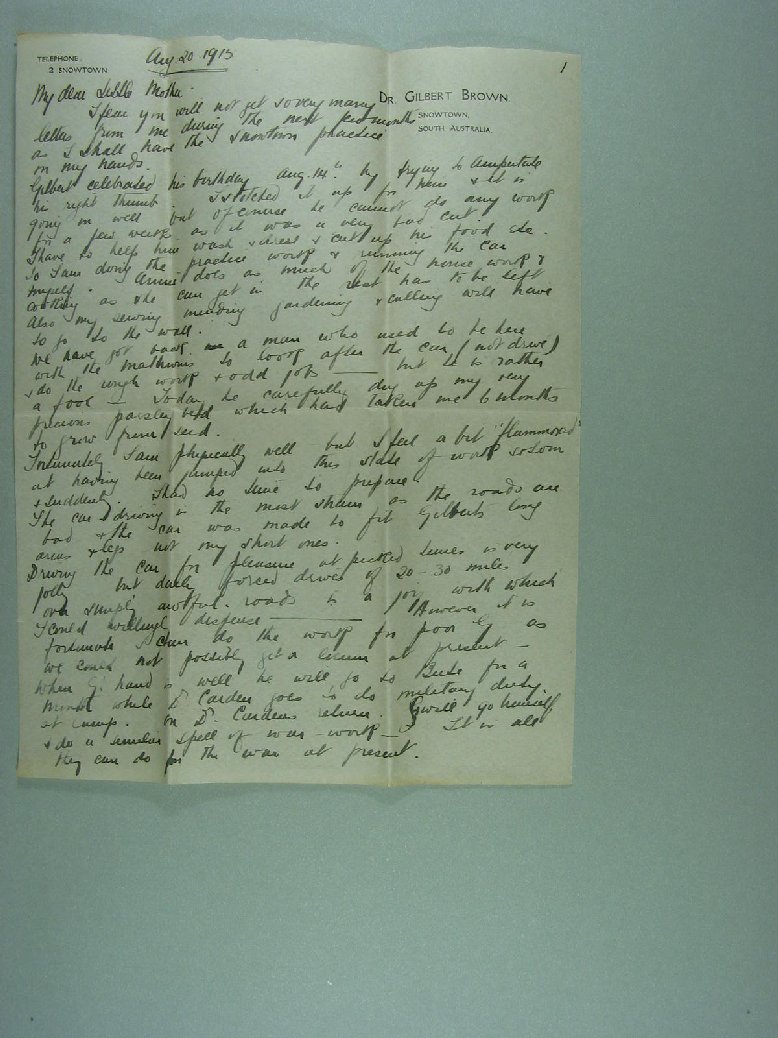 TELEPHONE:
2 SNOWTOWN
Aug 20 1915
1
DR. GILBERT BROWN
SNOWTOWN,
SOUTH AUSTRALIA.
My dear Little Mother.
I fear you will not get so very many
letters from me during the next few months
as I shall have the Snowtown practice
on my hands.
Gilbert celebrated his birthday Aug. 14th by trying to amputate
his right thumb. I stitched it up for him & it is
going on well but of course he cannot do any work
for a few weeks as it was a very bad cut.
I have to help him wash & dress & cut up his food etc.
So I am doing the practice work & running the car
myself. Annie does as much of the house work &
cooking as she can get in the rest has to be left
Also my sewing mending gardening & calling will have
to go to the wall.
We have got back a man who used to be here
with the Mathwins to look after the car (not drive)
& do the rough work & odd jobs — but he is rather
a fool — Today he carefully dug up my very
precious parsley bed which had taken me 6 months
to grow from seed.
Fortunately I am physically well but I feel a bit "flummoxed"
at having been jumped into this state of work so soon
& suddenly. I had no time to prepare.
The car driving is the most strain as the roads are
bad & the car was made to fit Gilbert's long
arms & legs not my short ones.
Driving the car for pleasure at picked times is very
jolly but daily forced drives of 20 - 30 miles
over simply awful roads is a joy with which
I could willingly dispense — However it is
fortunate I can do the work for poor G. as
we could not possibly get a locum at present —
When G. hand is well he will go to Bute for a
month while Dr Carden goes to do military duty
at camp. On Dr. Cardens return G will go himself
& do a similar spell of war-work — It is all
they can do for the war at present.